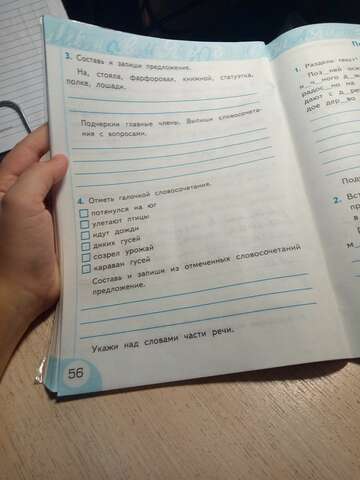 3. Составь и запиши предложение.
На, стояла, фарфоровая, книжной, статуэтка,
полке, лошади.
Подчеркни главные члены. Выпиши словосочета-
ния с вопросами.
4. Отметь галочкой словосочетания.
потянулся на юг
улетают птицы
идут дожди
диких гусей
созрел урожай
караван гусей
Составь и запиши из отмеченных словосочетаний
предложение.
Укажи над словами части речи.
56
1. Раздели текст
Поз_ней
н_ч_ного д_
радос_но на
дают с д_ре
дое дер_во
Под
2. Вст
пр
в
р
м_